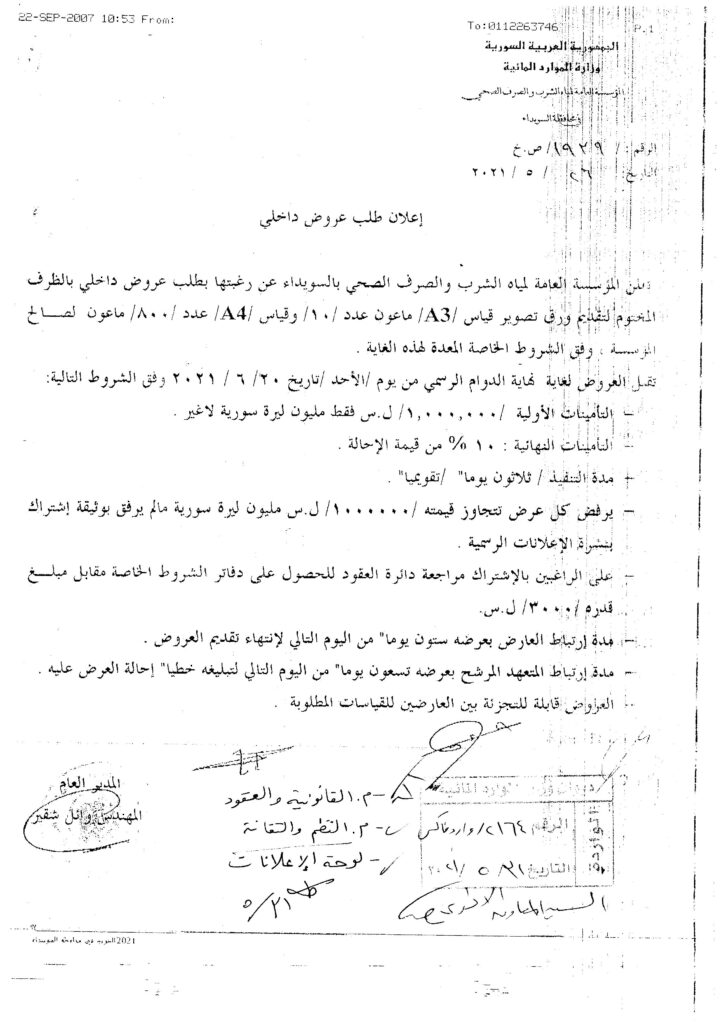 22-SEP-2007 10:53 From:
To:0112263746
P.1
الجمهورية العربية السورية
وزارة الموارد المائية
المؤسسة العامة لمياه الشرب والصرف الصحي
في محافظة السويداء
الرقم: /١٩٢٩/ص.خ
التاريخ: ٢٦ / ٥ / ٢٠٢١
إعلان طلب عروض داخلي
تعلن المؤسسة العامة لمياه الشرب والصرف الصحي بالسويداء عن رغبتها بطلب عروض داخلي بالظرف
المختوم لتقديم ورق تصوير قياس /A3/ ماعون عدد /١٠/ وقياس /A4/ عدد /٨٠٠/ ماعون لصالح
المؤسسة ، وفق الشروط الخاصة المعدة لهذه الغاية .
تقبل العروض لغاية نهاية الدوام الرسمي من يوم /الأحد /تاريخ ٢٠/ ٦ / ٢٠٢١ وفق الشروط التالية:
– التأمينات الأولية /١,٠٠٠,٠٠٠/ ل.س فقط مليون ليرة سورية لاغير .
– التأمينات النهائية : ١٠ % من قيمة الإحالة .
– مدة التنفيذ / ثلاثون يوما" /تقويميا" .
– يرفض كل عرض تتجاوز قيمته /١٠٠٠٠٠٠/ ل.س مليون ليرة سورية مالم يرفق بوثيقة إشتراك
بنشرة الإعلانات الرسمية .
– على الراغبين بالإشتراك مراجعة دائرة العقود للحصول على دفاتر الشروط الخاصة مقابل مبلغ
قدره /٣٠٠٠/ ل.س.
– مدة إرتباط العارض بعرضه ستون يوما" من اليوم التالي لإنتهاء تقديم العروض .
– مدة إرتباط المتعهد المرشح بعرضه تسعون يوما" من اليوم التالي لتبليغه خطيا" إحالة العرض عليه .
– العروض قابلة للتجزئة بين العارضين للقياسات المطلوبة .
المدير العام
المهندس وائل شقير
- م. القانونية والعقود
- م. النظم والتقانة
- لوحة الإعلانات
٥/٣١
الموارد المائية
الواردة
الرقم ٢١٦٤/وارد فاكس
التاريخ ٣١/ ٥ /٢٠٢١